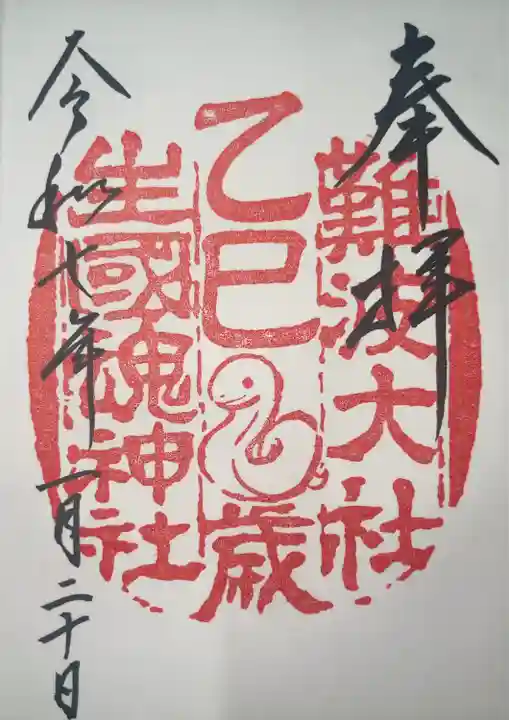 奉拝
難波大社
乙巳
歳
生國魂神社
令和七年 一月二十日